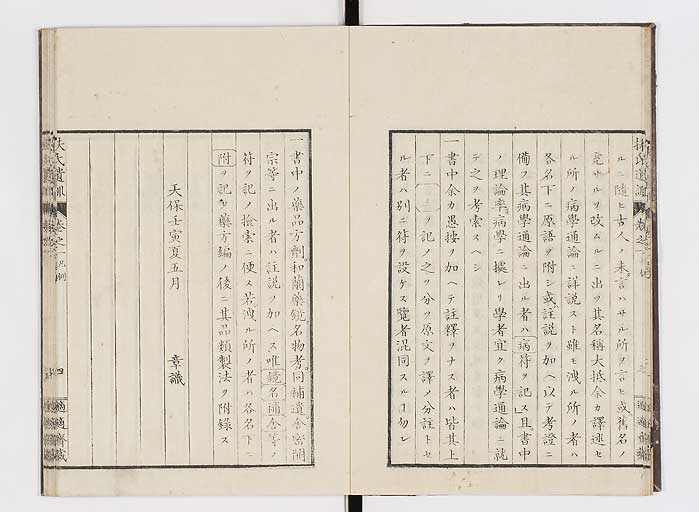 ルニ隨ヒ古人ノ未言ハサル所ヲ言ヒ或舊名ノ
亮サルヲ改ムルニ出ツ其名稱大抵余カ譯述セ
ル所ノ病學通論ニ詳説スト雖モ洩ル所ノ者ハ
各名下ニ原語ヲ附シ或註説ヲ加ヘ以テ考證ニ
備フ其病學通論ニ出ル者ハ病符ヲ記ス且書中
ノ理論率病學ニ據レリ學者宜ク病學通論ニ就
テ之ヲ考索スヘシ
一書中余カ愚按ヲ加ヘテ註釋ヲナス者ハ皆其上
下ニ ヲ記ノ之ヲ分ツ原文ヲ譯ノ分註トセ
ル者ハ別ニ符ヲ設ケス覽者混同スルヿ勿レ
扶氏遺訓 卷之一 凡例 四 適適齋藏
一書中ノ藥品方劑和蘭藥鏡名物考同補遺舎密開
宗等ニ出ル者ハ註説ヲ加ヘス唯鏡名補舎等ノ
符ヲ記ノ撿索ニ便ス若洩ル所ノ者ハ各名下ニ
附ヲ記シ藥方編ノ後ニ其品類製法ヲ附錄ス
天保壬寅夏五月
章識